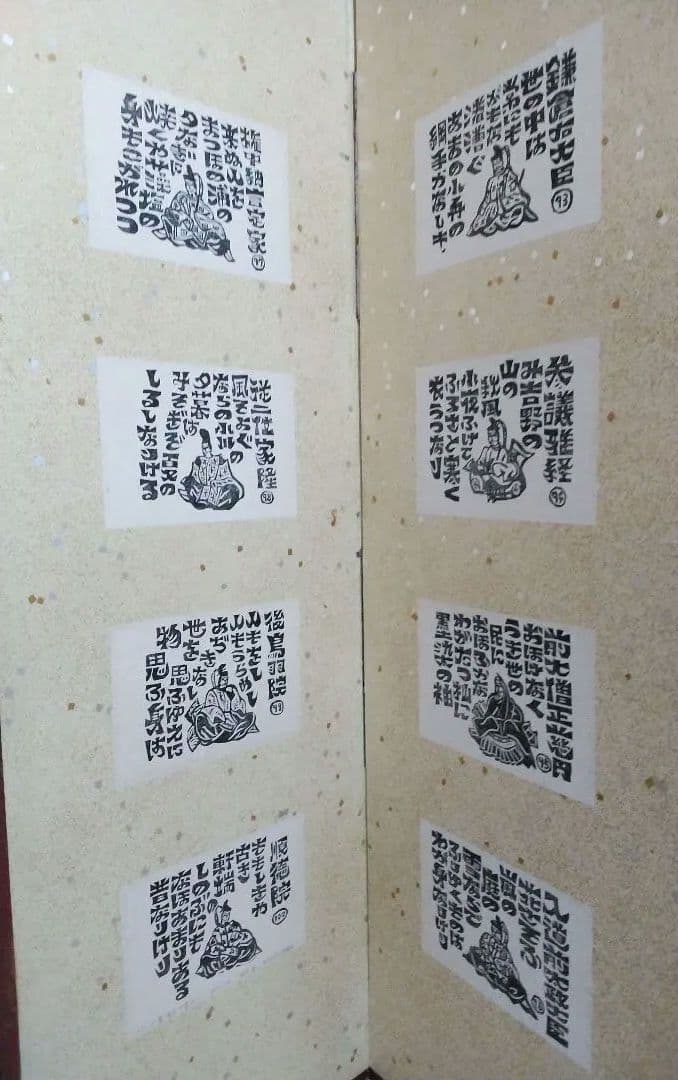 鎌倉右大臣 93
世の中は
つねにも
がもな
渚漕ぐ
あまの小舟の
綱手かなしも
参議雅経 94
み吉野の
山の
秋風
小夜ふけて
ふるさと寒く
衣うつなり
前大僧正慈円 95
おほけなく
うき世の
民に
おほふかな
わがたつ杣に
墨染の袖
入道前太政大臣
花さそふ
嵐の
庭の
雪ならで
ふりゆくものは
わが身なりけり
権中納言定家 97
来ぬ人を
まつほの浦の
夕なぎに
焼くや藻塩の
身もこがれつつ
従二位家隆 98
風そよぐ
ならの小川の
夕暮は
みそぎぞ夏の
しるしなりける
後鳥羽院 99
人もをし
人もうらめし
あぢきなく
世を
思ふゆえに
物思ふ身は
順徳院 100
ももしきや
古き
軒端の
しのぶにも
なほあまりある
昔なりけり